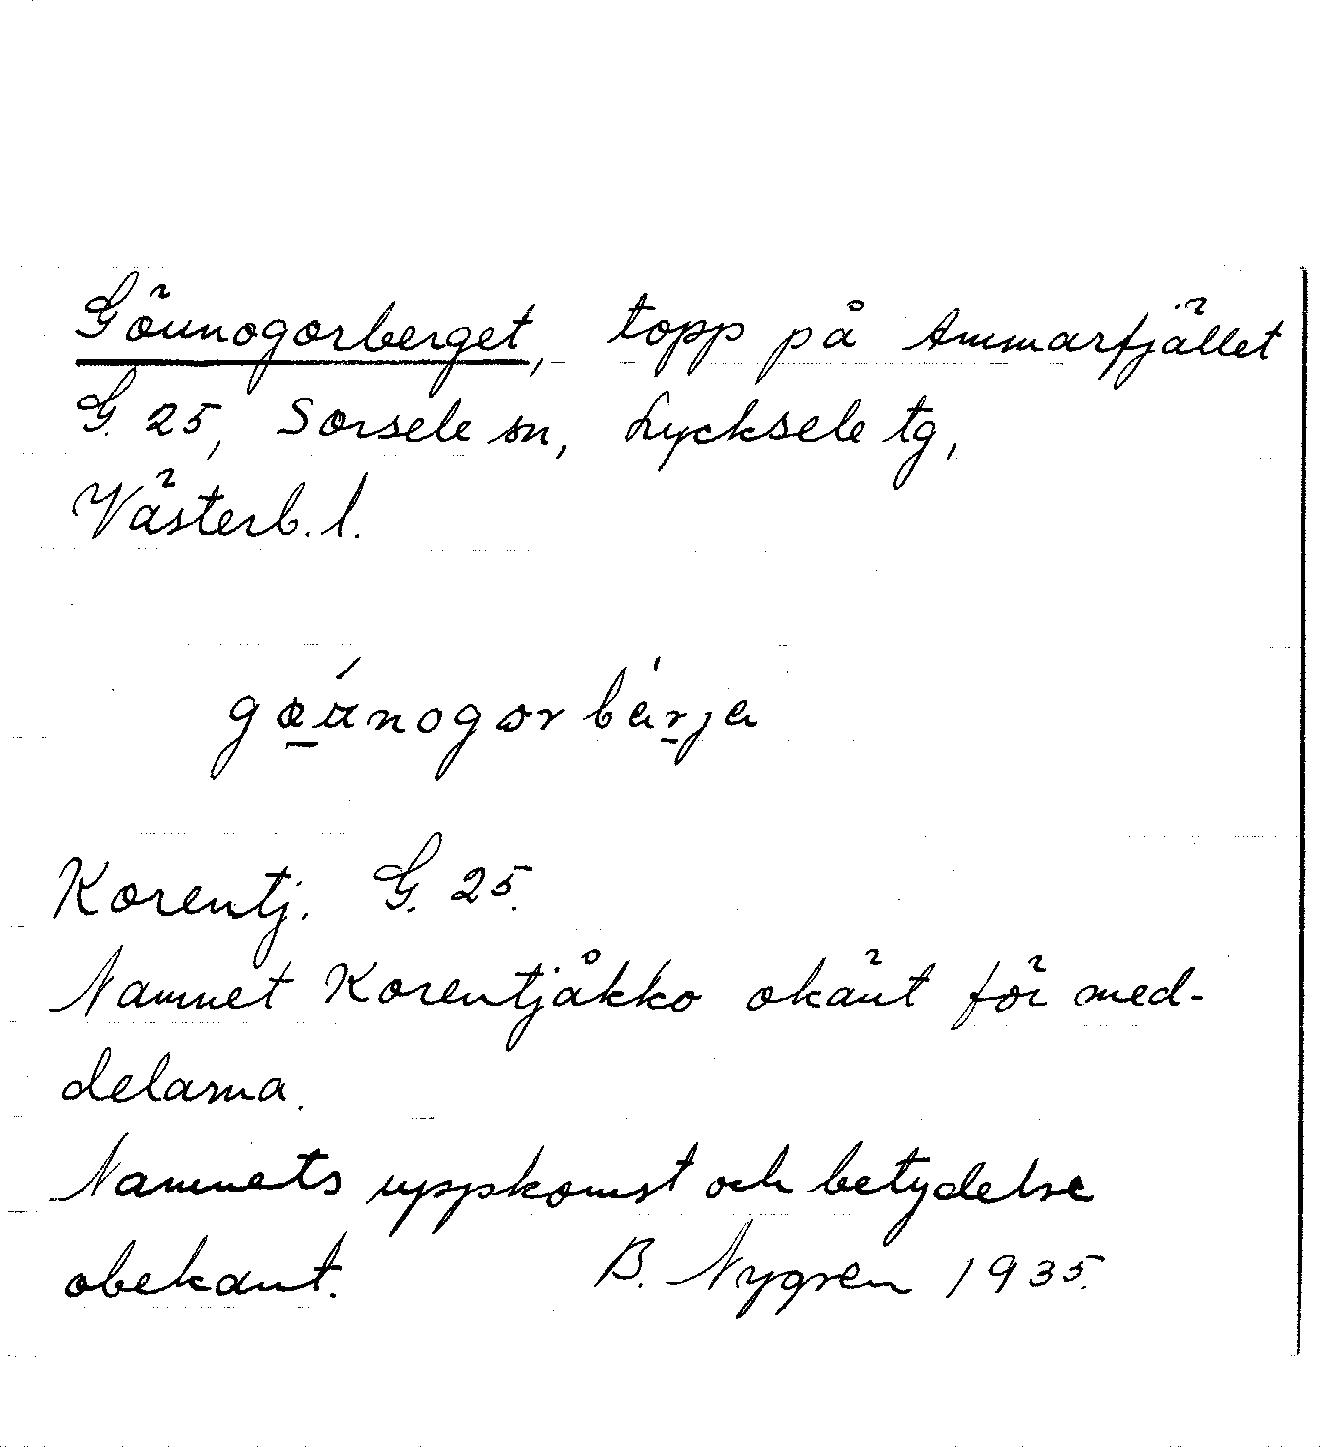 Göunogorberget, topp på Ammarfjället
G. 25, Sorsele sn, Lycksele tg,
Västerb. l.
Korentj. G. 25.
Namnet Korentjåkko okänt för med-
delarna.
Namnets uppkomst och betydelse
obekant. B. Nygren 1935.